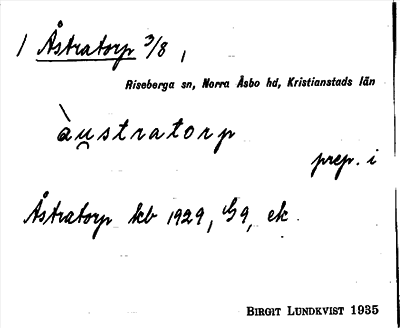 1 Åstratorp 3/8,
Riseberga sn, Norra Åsbo hd, Kristianstads län
àu̯stratorp
prep. i
Åstratorp kb 1929, G9, ek.
BIRGIT LUNDKVIST 1935